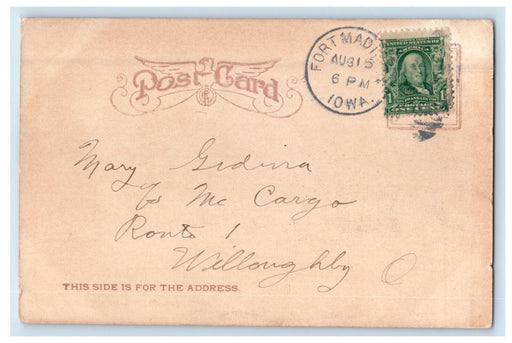 Post Card
FORT MADI
AUG 15
6 PM
IOWA.
UNITED STATES OF
AMERICA
1 1
ONE CENT
Mary
c/o Mc Cargo
Route 1
Willoughby O
THIS SIDE IS FOR THE ADDRESS.